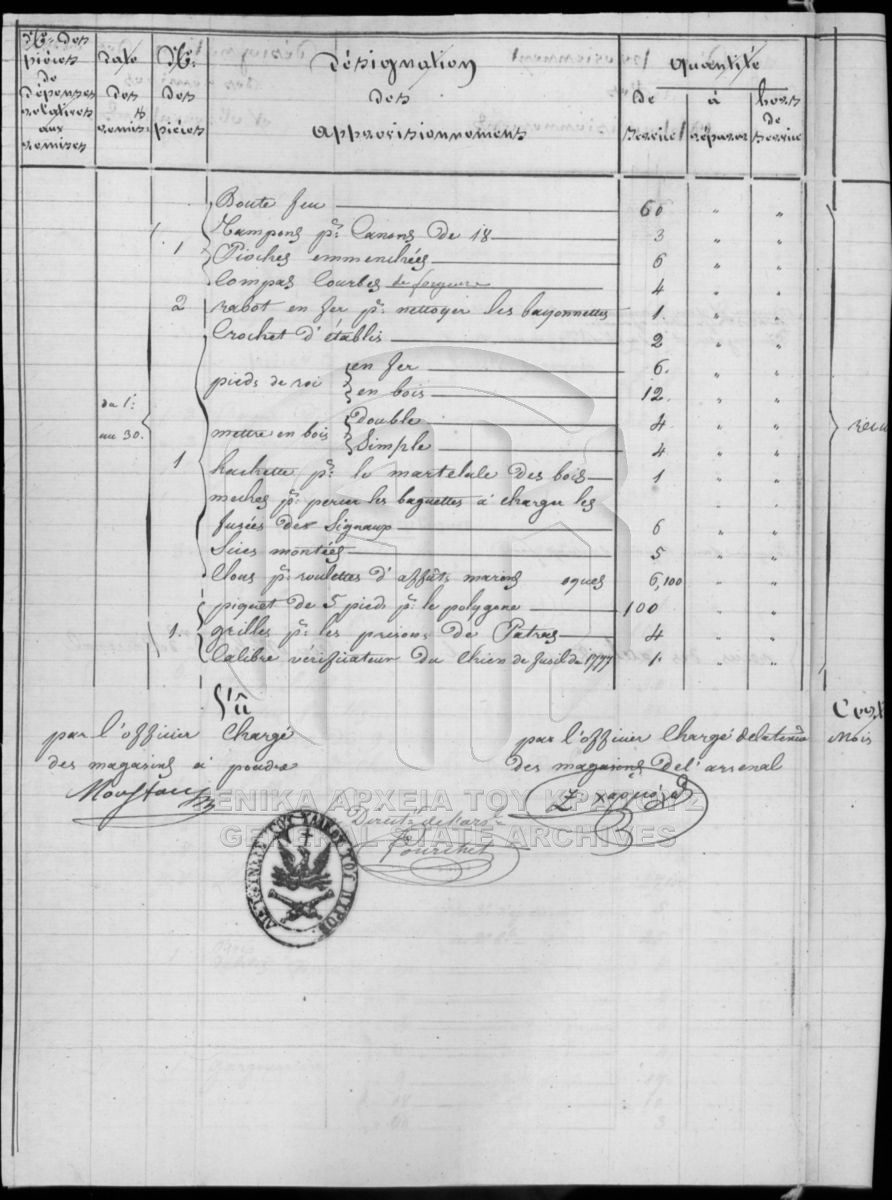 Nos des pièces de dépenses relatives aux remises | date des remises | No. des pièces | Désignation des approvisionnements | Quantité
de service | à réparer | hors de service
Boute feu 60 " "
Tampons pr. Canons de 18 3 " "
1 Pioches emmenchées 6 " "
Compas Courbes de 4 " "
2 rabot en fer pr. nettoyer les bayonnettes 1. " "
Crochet d'établis 2 " "
pieds de roi en fer 6. " "
en bois 12. " "
du 1er au 30. mettre en bois double 4 " "
Simple 4 " "
1 hachette pr. le martelale des bois 1 " "
meches pr. percer les baguettes à charger les
fusées des Signaux 6 " "
Scies montées 5 " "
Clous pr. roulettes d'affûts marins oques 6,100 " "
piquet de 5 pieds pr. le polygone 100 " "
1. grilles pr. les prisons de Patras 4 " "
Calibre vérificateur du Chien de fusil de 1777 1. " "
Vû
par l'officier Chargé
des magasins à poudre
par l'officier Chargé de la tenue
des magasins de l'arsenal
Mois
Direct. de l'ars.
ΓΕΝΙΚΑ ΑΡΧΕΙΑ ΤΟΥ ΚΡΑΤΟΥΣ
GENERAL STATE ARCHIVES